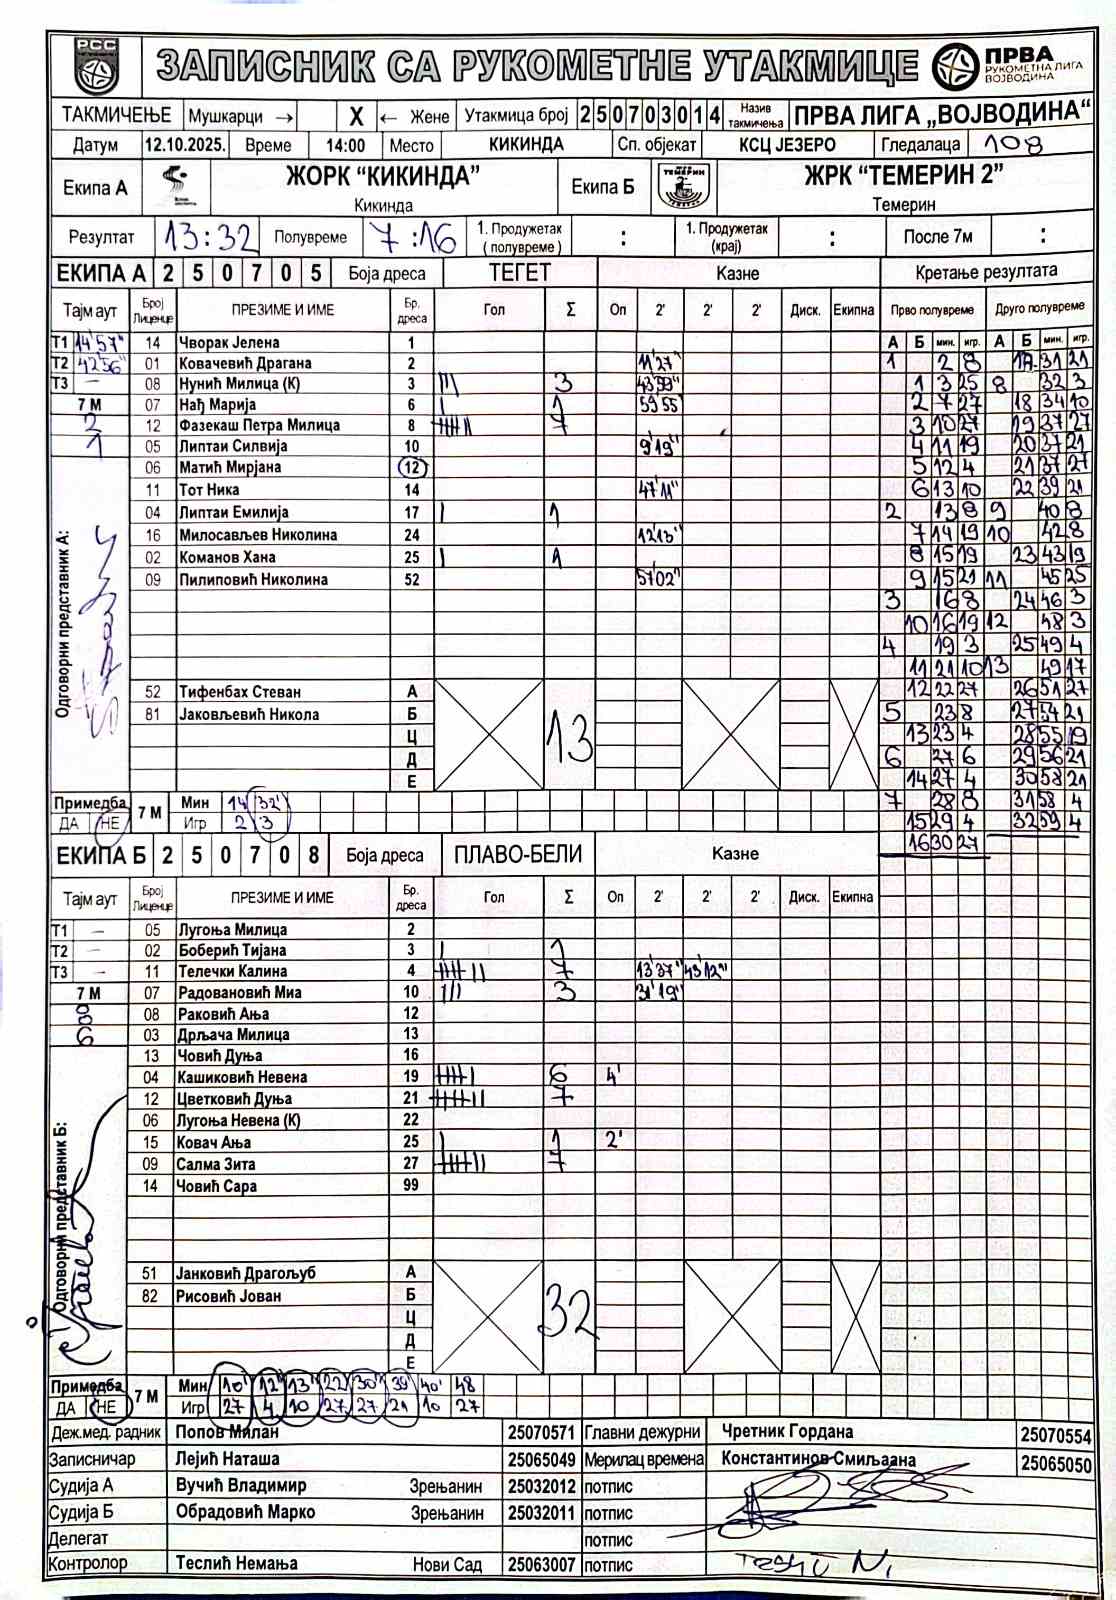 РСС
ЗАПИСНИК СА РУКОМЕТНЕ УТАКМИЦЕ
ПРВА РУКОМЕТНА ЛИГА ВОЈВОДИНА
ТАКМИЧЕЊЕ Мушкарци → X ← Жене Утакмица број 250703014 Назив такмичења ПРВА ЛИГА „ВОЈВОДИНА“
Датум 12.10.2025. Време 14:00 Место КИКИНДА Сп. објекат КСЦ ЈЕЗЕРО Гледалаца 108
Екипа А ЖОРК “КИКИНДА” Кикинда Екипа Б ЖРК “ТЕМЕРИН 2” Темерин
Резултат 13:32 Полувреме 7:16 1. Продужетак (полувреме) : 1. Продужетак (крај) : После 7м :
ЕКИПА А 2 5 0 7 0 5 Боја дреса ТЕГЕТ Казне Кретање резултата
Тајм аут Број Лиценце ПРЕЗИМЕ И ИМЕ Бр. дреса Гол Σ Оп 2' 2' 2' Диск. Екипна Прво полувреме Друго полувреме
А Б мин. игр. А Б мин. игр.
Т1 14'57" 14 Чворак Јелена 1
Т2 42'56" 01 Ковачевић Драгана 2 11'27"
Т3 — 08 Нунић Милица (К) 3 III 3 43'59"
7 М 07 Нађ Марија 6 I 1 59'55"
2 12 Фазекаш Петра Милица 8 7
1 05 Липтаи Силвија 10 9'19"
06 Матић Мирјана 12
11 Тот Ника 14 47'11"
04 Липтаи Емилија 17 I 1
16 Милосављев Николина 24 12'13"
02 Команов Хана 25 I 1
09 Пилиповић Николина 52 51'02"
Одговорни представник А:
52 Тифенбах Стеван А
81 Јаковљевић Никола Б
Ц
Д
Е
13
Примедба ДА НЕ 7 М Мин 14 32'
Игр 2 3
1 2 8 17 31 21
1 3 25 8 32 3
2 7 27 18 34 10
3 10 27 19 37 27
4 11 19 20 37 21
5 12 4 21 37 27
6 13 10 22 39 21
2 13 8 9 40 8
7 14 19 10 42 8
8 15 19 23 43 19
9 15 21 11 45 25
3 16 8 24 46 3
10 16 19 12 48 3
4 19 3 25 49 4
11 21 10 13 49 17
12 22 27 26 51 27
5 23 8 27 54 21
13 23 4 28 55 19
6 27 6 29 56 21
14 27 4 30 58 21
7 28 8 31 58 4
15 29 4 32 59 4
16 30 27
ЕКИПА Б 2 5 0 7 0 8 Боја дреса ПЛАВО-БЕЛИ Казне
Тајм аут Број Лиценце ПРЕЗИМЕ И ИМЕ Бр. дреса Гол Σ Оп 2' 2' 2' Диск. Екипна
Т1 — 05 Лугоња Милица 2
Т2 — 02 Боберић Тијана 3 I 1
Т3 — 11 Телечки Калина 4 7 13'37" 43'12"
7 М 07 Радовановић Миа 10 III 3 31'19"
8 08 Раковић Ања 12
6 03 Дрљача Милица 13
13 Човић Дуња 16
04 Кашиковић Невена 19 6 4'
12 Цветковић Дуња 21 7
06 Лугоња Невена (К) 22
15 Ковач Ања 25 I 1 2'
09 Салма Зита 27 7
14 Човић Сара 99
Одговорни представник Б:
51 Јанковић Драгољуб А
82 Рисовић Јован Б
Ц
Д
Е
32
Примедба ДА НЕ 7 М Мин 10' 12' 13' 22 30' 39' 40' 48
Игр 27 4 10 27 27 21 10 27
Деж.мед. радник Попов Милан 25070571 Главни дежурни Чретник Гордана 25070554
Записничар Лејић Наташа 25065049 Мерилац времена Константинов Смиљана 25065050
Судија А Вучић Владимир Зрењанин 25032012 потпис
Судија Б Обрадовић Марко Зрењанин 25032011 потпис
Делегат потпис
Контролор Теслић Немања Нови Сад 25063007 потпис